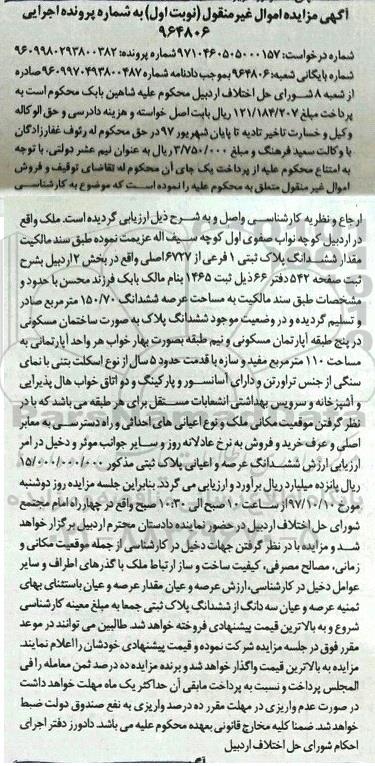 آگهی مزایده اموال غیرمنقول (نوبت اول) به شماره پرونده اجرایی
۹۶۴۸۰۶
شماره درخواست: ۹۷۱۰۴۶۰۵۰۵۰۰۰۱۵۷ شماره پرونده: ۹۶۰۹۹۸۰۲۹۳۸۰۰۳۸۲
شماره بایگانی شعبه: ۹۶۴۸۰۶ بموجب دادنامه شماره ۹۶۰۹۹۷۰۴۹۳۸۰۰۴۸۷ صادره
از شعبه ۸ شورای حل اختلاف اردبیل محکوم علیه شاهین بابک محکوم است به
پرداخت مبلغ ۱۲۱/۱۸۴/۲۰۷ ریال بابت اصل خواسته و هزینه دادرسی و حق الوکاله
وکیل و خسارت تاخیر تادیه تا پایان شهریور ۹۷ در حق محکوم له رئوف غفارزادگان
با وکالت سعید فرهنگ و مبلغ ۳/۷۵۰/۰۰۰ ریال به عنوان نیم عشر دولتی، با توجه
به امتناع محکوم علیه از پرداخت یک جای آن محکوم له تقاضای توقیف و فروش
اموال غیر منقول متعلق به محکوم علیه را نموده است که موضوع به کارشناسی
ارجاع و نظریه کارشناسی واصل و به شرح ذیل ارزیابی گردیده است. ملک واقع
در اردبیل کوچه نواب صفوی اول کوچه سیف اله عزیمت نموده طبق سند مالکیت
مقدار ششدانگ پلاک ثبتی ۱ فرعی از ۶۷۲۷ اصلی واقع در بخش ۲ اردبیل بشرح
ثبت صفحه ۵۴۲ دفتر ۶۶ ذیل ثبت ۱۴۶۵ بنام مالک بابک فرزند محسن با حدود و
مشخصات طبق سند مالکیت به مساحت عرصه ششدانگ ۱۵۰/۷۰ مترمربع صادر
و تسلیم گردیده و در وضعیت موجود ششدانگ پلاک به صورت ساختمان مسکونی
در پنج طبقه آپارتمان مسکونی و نیم طبقه بصورت بهار خواب هر واحد آپارتمانی به
مساحت ۱۱۰ مترمربع مفید و سازه با قدمت حدود ۵ سال از نوع اسکلت بتنی با نمای
سنگی از جنس تراورتن و دارای آسانسور و پارکینگ و دو اتاق خواب هال پذیرایی
و آشپزخانه و سرویس بهداشتی انشعابات مستقل برای هر طبقه می باشد که با در
نظر گرفتن موقعیت مکانی ملک و نوع اعیانی های احداثی و راه دسترسی به معابر
اصلی و عرف خرید و فروش به نرخ عادلانه روز و سایر جوانب موثر و دخیل در امر
ارزیابی ارزش ششدانگ عرصه و اعیانی پلاک ثبتی مذکور ۱۵/۰۰۰/۰۰۰/۰۰۰
ریال پانزده میلیارد ریال برآورد و ارزیابی می گردد. بنابراین جلسه مزایده روز دوشنبه
مورخ ۹۷/۱۰/۱۰ از ساعت ۱۰ صبح الی ۱۰:۳۰ صبح واقع در چهار راه امام مجتمع
شورای حل اختلاف اردبیل در حضور نماینده دادستان محترم اردبیل برگزار خواهد
شد و مزایده با در نظر گرفتن جهات دخیل در کارشناسی از جمله موقعیت مکانی و
زمانی، مصالح مصرفی، کیفیت ساخت و ساز ارتباط ملک با گذرهای اطراف و سایر
عوامل دخیل در کارشناسی، ارزش عرصه و عیان مقدار عرصه و عیان باستثنای بهای
ثمنیه عرصه و عیان سه دانگ از ششدانگ پلاک ثبتی جمعا به مبلغ معینه کارشناسی
شروع و به بالاترین قیمت پیشنهادی فروخته خواهد شد. طالبین می توانند در موعد
مقرر فوق در جلسه مزایده شرکت نموده و قیمت پیشنهادی خودشان را اعلام نمایند.
مزایده به بالاترین قیمت واگذار خواهد شد و برنده مزایده ده درصد ثمن معامله را فی
المجلس پرداخت و نسبت به پرداخت مابقی آن حداکثر یک ماه مهلت خواهد داشت
در صورت عدم واریزی در مهلت مقرر ده درصد واریزی به نفع صندوق دولت ضبط
خواهد شد. ضمنا کلیه مخارج قانونی بعهده محکوم علیه می باشد. دادورز دفتر اجرای
احکام شورای حل اختلاف اردبیل